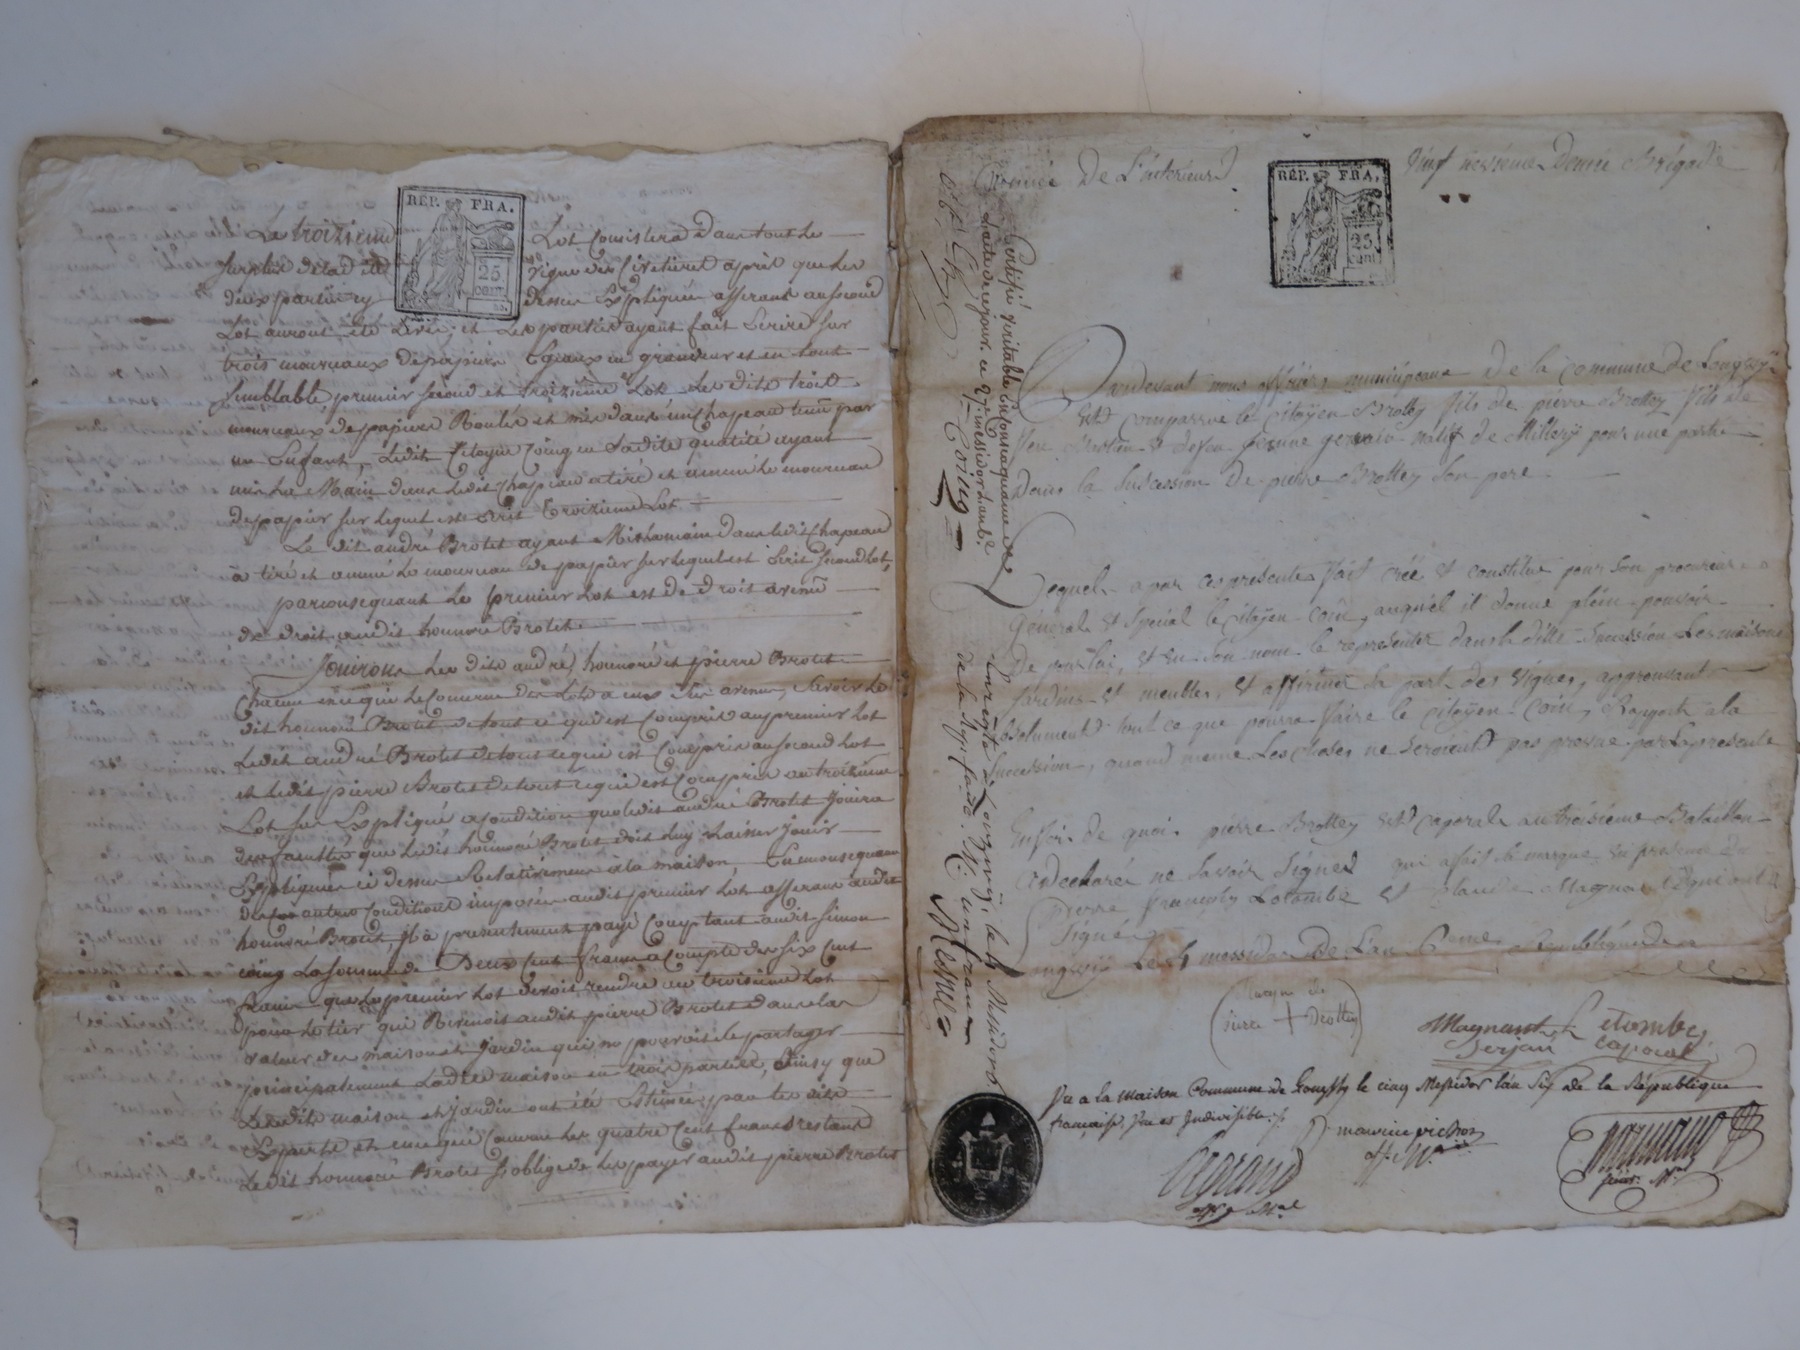 RÉP. FRA.
25
cent.
Le troizieme Lot Consistera dans tout le
surplus de lad. vigne des apres que les
deux partiers dessus Expliquée afferant au second
Lot auront été Levée; et Les parties ayant fait Ecrire sur
trois mourceaux de papier Egeaux en grandeur et en tout
semblable premier second et troizieme Lot, Les dits trois
mourceaux de papier Roulés et mis dans un chapeau tenu par
un Enfant, Ledit Citoyen Coing en Ladite qualité ayant
mis La Main dans Ledit chapeau a tiré et amené Le mourceau
de papier sur lequel est Ecrit troizieme Lot
Le dit andré Brotet ayant Mis La main dans Ledit Chapeau
a tiré et amené Le mourceau de papier sur Lequel est Ecrit second Lot,
par consequant Le premier Lot est de droit avenu
de droit audit honnoré Brotet.
Jouiront Les dits andré, honnoré et pierre Brotet
Chacun en ce qui Le Concerne des Lots a eux avenus, savoir Le
dit honnoré Brotet de tout ce qui est Compris au premier Lot
Ledit andré Brotet de tout ce qui est Compris au second Lot
et Ledit pierre Brotet de tout ce qui est Compris au troizieme
Lot sur Expliqué a condition que Ledit andré Brotet Jouira
des facultés que Ledit honnoré Brotet doit Luy Laisser Jouir
Expliquées ci dessus Relativement a la maison, En consequance
des autres Conditions imposées audit premier Lot afferant audit
honnoré Brotet Il a presentement payé Comptant audit Simon
Coing La somme de Deux Cent francs a Compte des six Cent
francs que Le premier Lot devoit rendre au troisieme Lot
pour Le tier qui Revenoit audit pierre Brotet dans la
valeur des maison et Jardin qui ne pouvoit se partager
principalement Ladite maison en trois parties, Ainsy que
Lesdits maison et jardin ont été Estimées par les dits
Experts, et en ce qui Concerne Les quatre Cent francs restant
Le dit honnoré Brotet s'oblige de Les payer audit pierre Brotet
Armée De L'interieur
RÉP. FRA.
25
cent.
Vingt troisieme Demie Brigade
Pardevant nous officiers municipeaux de la commune de Longwy
Est comparrue le citoyen Brottey fils de pierre Brottey fils de
feu Martin et de feu jeanne gervais natif de Millery pour une partie
Dans la sucession De pierre Brottey son pere.
Lequel a par ces presentes fait crée et constitué pour son procureur
Général et Spécial le citoyen Coin, auquel il donne plein pouvoir
De pour lui, et en son nom le representer dans la ditte sucession Les maisons
Jardins et meubles, et affermer la part des vignes, approuvant
absolument tout ce que pourra faire le citoyen Coin, Rapport a la
succession, quand meme Les choses ne seroient pas prevue par La presente
En foi de quoi pierre Brottey est caporale au troisieme Bataillon
et a declarée ne savoir Signer qui a fait sa marque en presence de
pierre françois Letombe et Claude Magnant qui ont
Signé.
Longwy Le 4 messidor De L'an 6eme Republiquaine
marque de
pierre + Brottey
Magnant
Serjan
Letombe
caporal
Vu a la Maison Commune de Longwy le cinq Messidor l'an Six de la République
française Une et Indivisible.
maurice pichon
off. Mal
Legrand
off. Mal
Certifié veritable En Consequance de
L'acte de ce jour, ce 27 messidor L'an 6e
Coing
Enregistré à Longwy, le 5 Messidor
de la Rep. faise. R. un franc
Mesnil